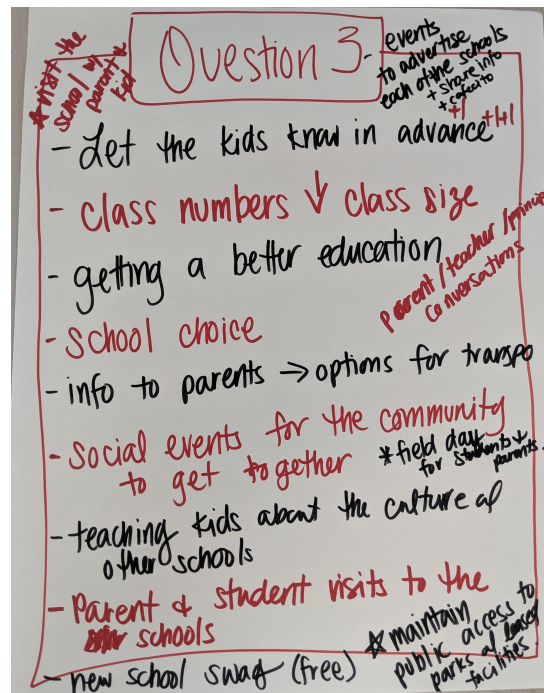 * visit the
school w/
parent &
kid
Question 3
- events
to advertise
each of the schools
+ share info
+ cafecito
+1
- Let the kids know in advance +1+1
- class numbers ↓ class size
- getting a better education
parent/teacher/princip
conversations
- School choice
- info to parents → options for transpo
- Social events for the community
to get together
* field day
for students +
parents.
- teaching kids about the culture of
other schools
- Parent & student visits to the
schools
* maintain
public access to
parks at
facilities.
- new school swag (free)